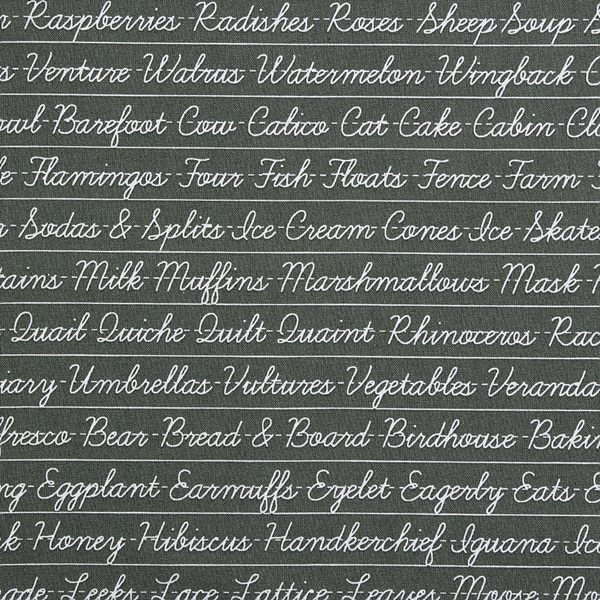 Raspberries - Radishes - Roses - Sheep Soup - S
s - Venture - Walrus - Watermelon - Wingback - C
owl - Barefoot - Cow - Calico - Cat - Cake - Cabin - Cl
e - Flamingos - Four - Fish - Floats - Fence - Farm -
Sodas & Splits - Ice - Cream - Cones - Ice - Skate
tains - Milk - Muffins - Marshmallows - Mask -
- Quail - Quiche - Quilt - Quaint - Rhinoceros - Rac
iary - Umbrellas - Vultures - Vegetables - Veranda
fresco - Bear - Bread - & - Board - Birdhouse - Bakin
ng - Eggplant - Earmuffs - Eyelet - Eagerly - Eats - E
k - Honey - Hibiscus - Handkerchief - Iguana - Ic
ade - Leeks - Lace - Lattice - Leaves - Moose - Mo